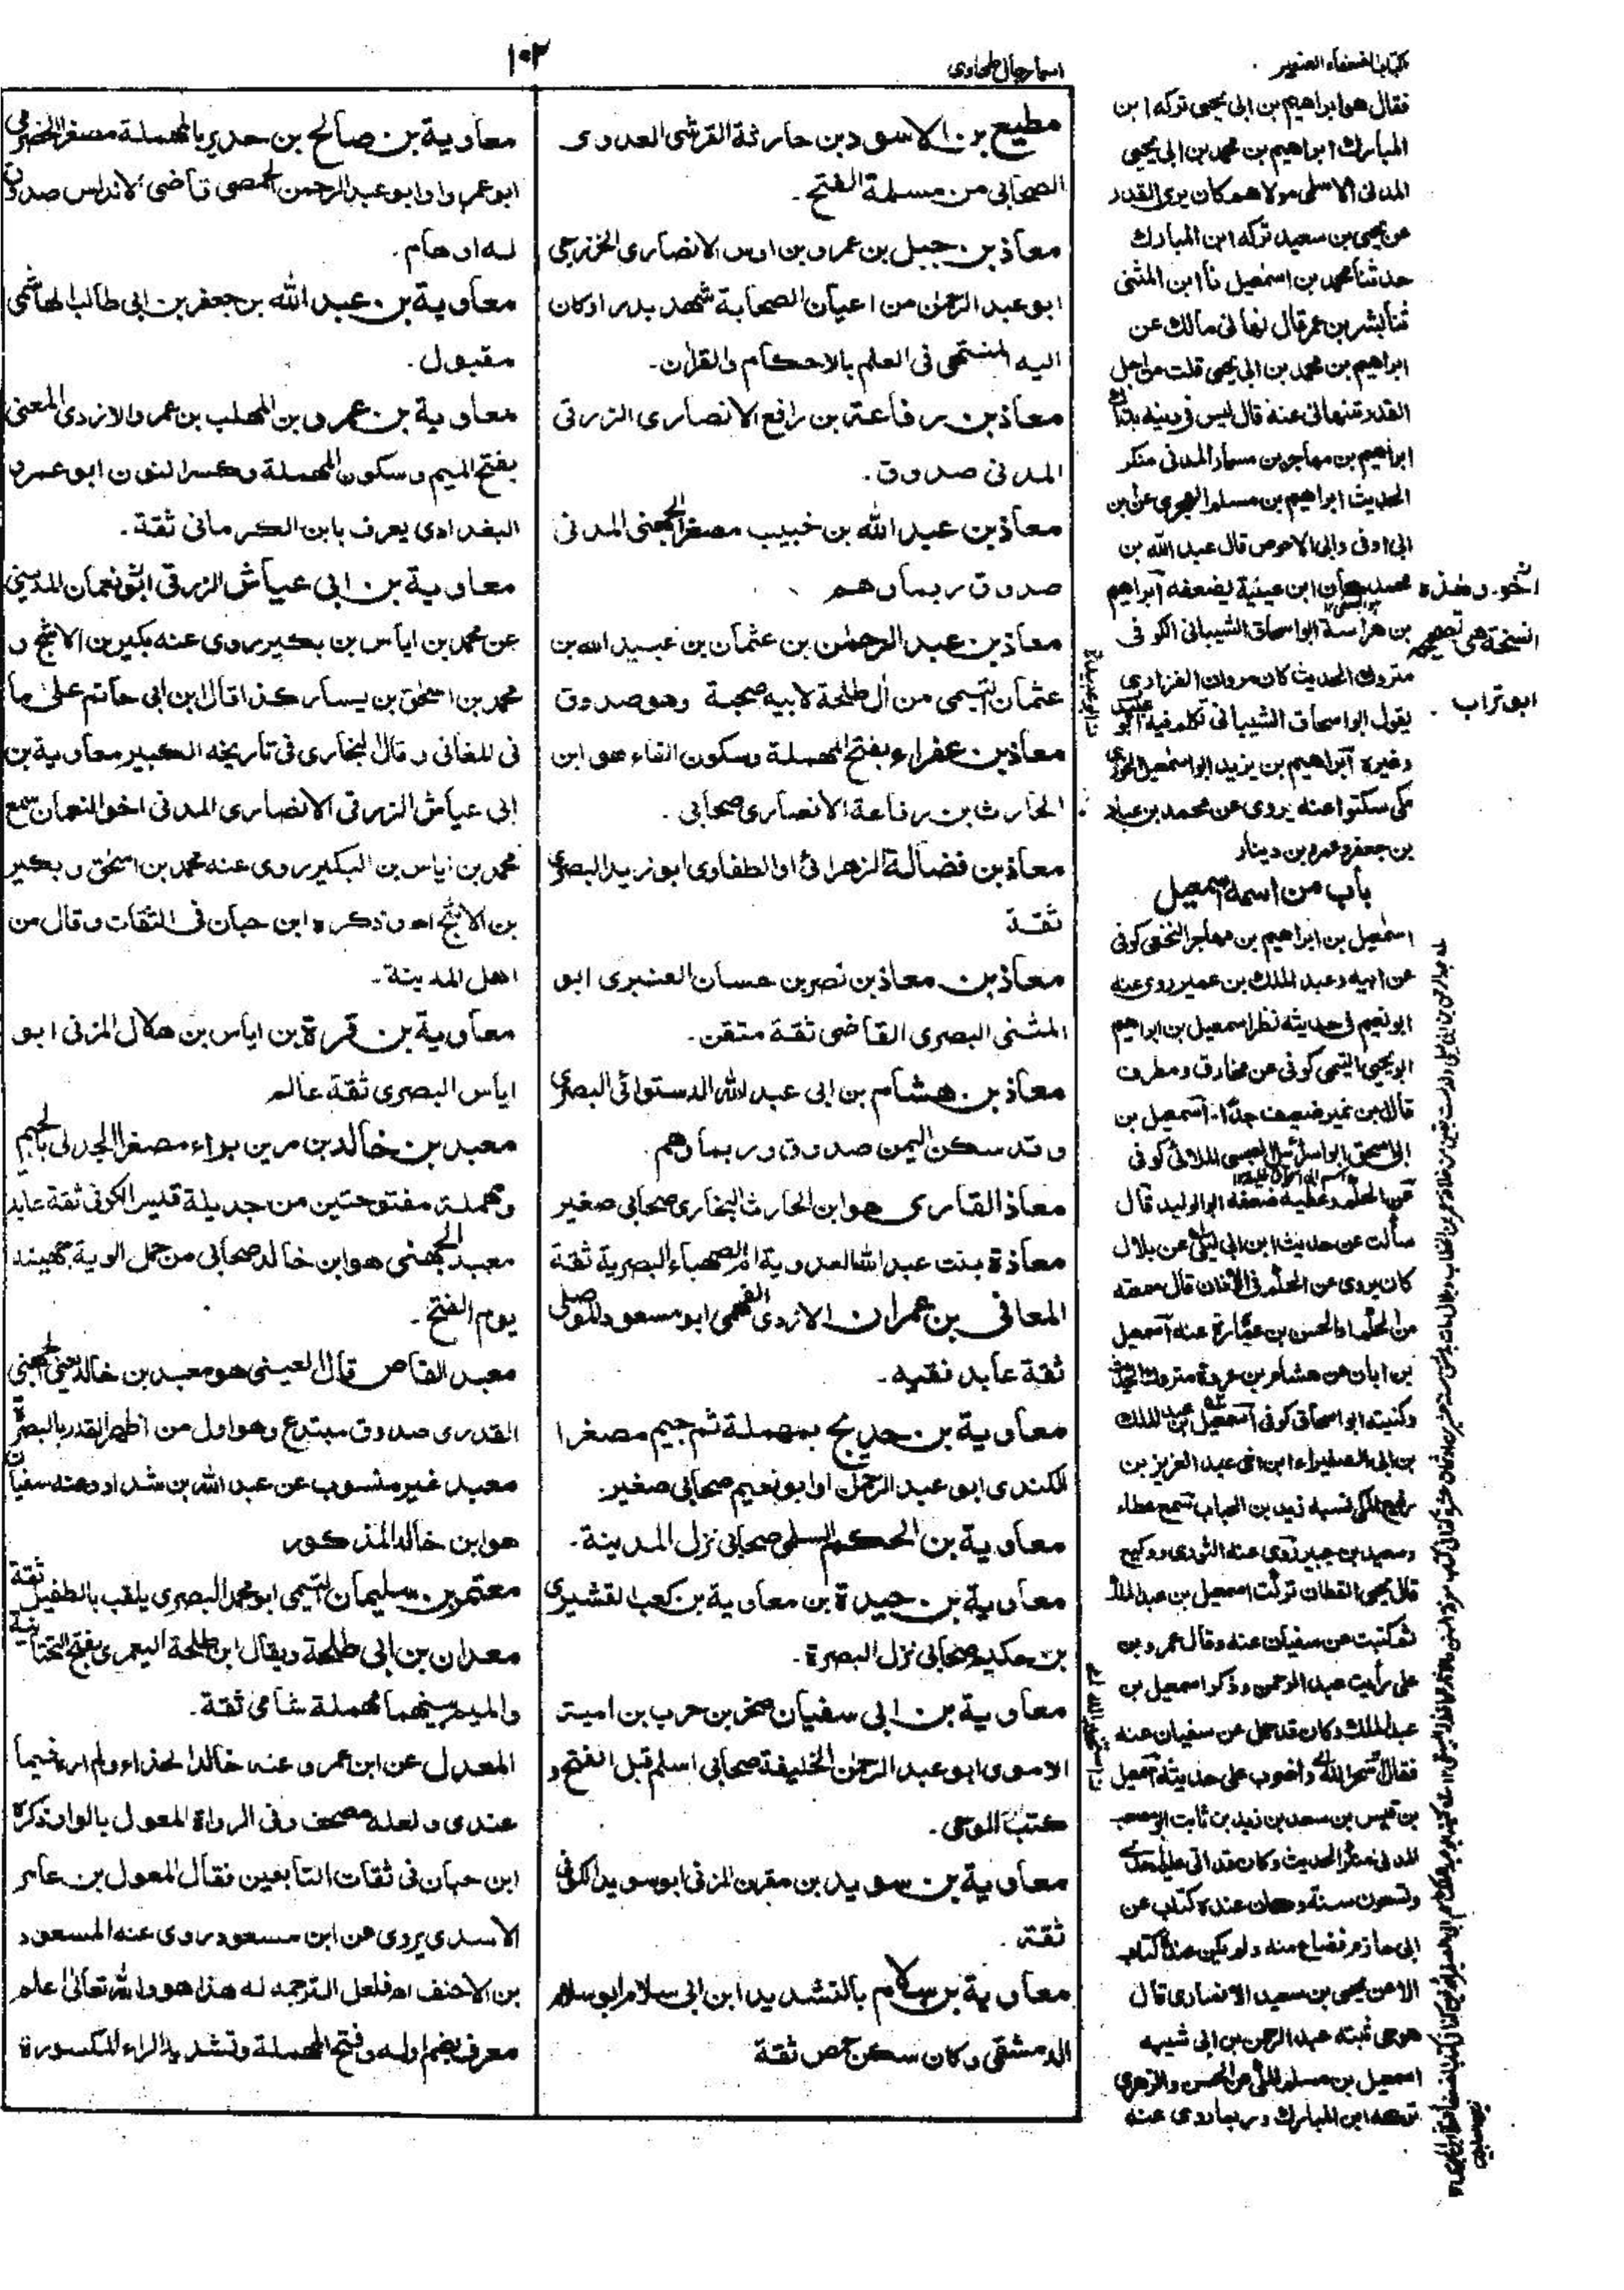 ١٠٢
اسما رجال طحاوی
کتاب الضعفاء الصغیر
مطیع بن الاسود بن حارثة القرشی العدوی
الصحابی من مسلمة الفتح۔
معاذ بن جبل بن عمرو بن اوس الانصاری الخزرجی
ابو عبد الرحمٰن من اعیان الصحابة شهد بدرا وکان
الیه المنتهی فی العلم بالاحکام والقرآن۔
معاذ بن رفاعة بن رافع الانصاری الزرقی
المدنی صدوق۔
معاذ بن عبد الله بن خبیب مصغرا الجهنی المدنی
صدوق ربما وهم
معاذ بن عبد الرحمٰن بن عثمان بن عبید الله بن
عثمان التیمی من آل طلحة لابیه صحبة وهو صدوق
معاذ بن عفراء بفتح المهملة وسکون الفاء هو ابن
الحارث بن رفاعة الانصاری صحابی۔
معاذ بن فضالة الزهرانی او الطفاوی ابو زید البصری
ثقة
معاذ بن معاذ بن نصر بن حسان العنبری ابو
المثنی البصری القاضی ثقة متقن۔
معاذ بن هشام بن ابی عبد الله الدستوائی البصری
وقد سکن الیمن صدوق وربما وهم۔
معاذ القاری هو ابن الحارث النجاری صحابی صغیر
معاذة بنت عبد الله العدویة ام الصهباء البصریة ثقة
المعافی بن عمران الازدی الفهمی ابو مسعود الموصلی
ثقة عابد فقیه۔
معاویة بن حدیج بمهملة ثم جیم مصغرا
الکندی ابو عبد الرحمن او ابو نعیم صحابی صغیر۔
معاویة بن الحکم السلمی صحابی نزل المدینة۔
معاویة بن حیدة بن معاویة بن کعب القشیری
بن حکیم صحابی نزل البصرة۔
معاویة بن ابی سفیان صخر بن حرب بن امیة
الاموی ابو عبد الرحمٰن الخلیفة صحابی اسلم قبل الفتح و
کتب الوحی۔
معاویة بن سوید بن مقرن المزنی ابو سوید الکوفی
ثقة۔
معاویة بن سلام بالتشدید ابن ابی سلام ابو سلام
الدمشقی وکان سکن حمص ثقة
معاویة بن صالح بن حدیر بالمهملة مصغرا الحضرمی
ابو عمرو او ابو عبد الرحمن الحمصی قاضی الاندلس صدوق
له اوهام۔
معاویة بن عبد الله بن جعفر بن ابی طالب الهاشمی
مقبول۔
معاویة بن عمرو بن المهلب بن عمرو الازدی المعنی
بفتح المیم وسکون المهملة وکسر النون ابو عمرو
البغدادی یعرف بابن الکرمانی ثقة۔
معاویة بن ابی عیاش الزرقی اخو نعمان المدینی
عن محمد بن ایاس بن بکیر روی عنه بکیر بن الاشج و
محمد بن اسحٰق بن یسار کذا قال ابن ابی حاتم علی ما
فی المغانی وقال البخاری فی تاریخه الکبیر معاویة بن
ابی عیاش الزرقی الانصاری المدنی اخو النعمان سمع
محمد بن ایاس بن البکیر روی عنه محمد بن اسحٰق وبکیر
بن الاشج اه وذکره ابن حبان فی الثقات وقال من
اهل المدینة۔
معاویة بن قرة بن ایاس بن هلال المزنی ابو
ایاس البصری ثقة عالم
معبد بن خالد بن مرین براء مصغرا الجدلی بالجیم
ومهملة مفتوحتین من جدیلة قیس الکوفی ثقة عابد
معبد الجهنی هو ابن خالد صحابی من حمل الویة جهینة
یوم الفتح۔
معبد القاص قال العینی هو معبد بن خالد یعنی الجهنی
القدری صدوق مبتدع وهو اول من اظهر القدر بالبصرة
معبد غیر منسوب عن عبد الله بن شداد وعنه سفیان
هو ابن خالد المذکور
معتمر بن سلیمان التیمی ابو محمد البصری یلقب بالطفیل ثقة
معدان بن ابی طلحة ویقال ابن طلحة الیعمری بفتح التحتانیة
والمیم بینهما مهملة شامی ثقة۔
المعدل عن ابن عمرو عنه خالد الحذاء ولم اره فیما
عندی ولعله مصحف وفی الرواة المعول بالواو ذکره
ابن حبان فی ثقات التابعین فقال المعول بن عامر
الاسدی یروی عن ابن مسعود روی عنه المسعود
بن الاحنف اه فلعل الترجمه له هذا هو والله تعالیٰ اعلم
معرف بضم اوله وفتح المهملة وتشدید الراء المکسورة
فقال هو ابراهیم بن ابی یحیی ترکه ابن
المبارك ابراهیم بن محمد بن ابی یحیی
المدنی الاسلمی مولاهم کان یری القدر
عن یحیی بن سعید ترکه ابن المبارك
حدثنا محمد بن اسمٰعیل نا ابن المثنی
ثنا بشر بن عمر قال نهانی مالك عن
ابراهیم بن محمد بن ابی یحیی قلت من اجل
القدر تنهانی عنه قال لیس فی دینه بذاك
ابراهیم بن مهاجر بن مسمار المدنی منکر
الحدیث ابراهیم بن مسلم الهجری عن ابن
ابی اوفی وابی الاحوص قال عبد الله بن
محمد کان ابن عیینة یضعفه ابراهیم
بن هراسة ابو اسحاق الشیبانی الکوفی
متروك الحدیث کان مروان الفزاری
یقول ابو اسحاق الشیبانی تکلم فیه ابو عبید
وغیره ابراهیم بن یزید ابو اسمٰعیل الخوزی
مکی سکتوا عنه یروی عن محمد بن عباد
بن جعفر وعمرو بن دینار
باب من اسمه اسمٰعیل
اسمٰعیل بن ابراهیم بن مهاجر النخعی کوفی
عن ابیه وعبد الملك بن عمیر روی عنه
ابو نعیم فی حدیثه نظر اسمعیل بن ابراهیم
ابو یحیی التیمی کوفی عن مخارق ومطرف
قال ابن نمیر ضعیف جدا۔ اسمعیل بن
ابی اسحق ابو اسرائیل العبسی الملائی کوفی
عن الحکم وعطیة ضعفه ابو الولید قال
سألت عن حدیث ابن ابی لیلی عن بلال
کان یروی عن الحکم فی الاذان قال سمعته
من الحکم او الحسن بن عمارة عنه اسمعیل
بن ابان عن هشام بن عروة متروك الحدیث
وکنیته ابو اسحاق کوفی اسمعیل بن عبد الملك
بن ابی الصفیراء ابن اخی عبد العزیز بن
رفیع المکی نسبه زید بن الحباب سمع عطاء
وسعید بن جبیر روی عنه الثوری ووکیع
قال یحیی القطان ترکت اسمعیل بن عبد الملك
ثم کتبت عن سفیان عنه وقال عمرو بن
علی رأیت عبد الرحمن وذکر اسمعیل بن
عبد الملك وکان قد حمل عن سفیان عنه
فقال استخیر الله واضرب علی حدیثه اسمعیل
بن قیس بن سعد بن زید بن ثابت ابو مصعب
المدنی منکر الحدیث وکان قد اتی علیه احدی
وتسعون سنة وکان عنده کتاب عن
ابی حازم فضاع منه ولم یکن عنده کتاب
الا عن یحیی بن سعید الانصاری قال
هو حی ثبته عبد الرحمن بن ابی شیبه
اسمعیل بن مسلم المکی عن الحسن والزهری
ترکه ابن المبارك وربما روی عنه
النسخة هی الصحیحة
ابو تراب